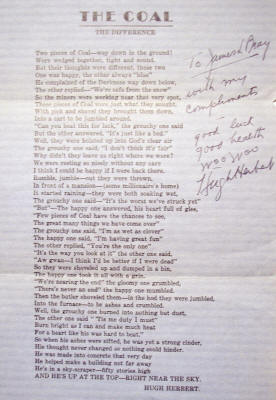 THE COAL
THE DIFFERENCE
Two pieces of Coal—way down in the ground!
Were wedged together, tight and sound.
But their thoughts were different, those two
One was happy, the other always "blue"
He complained of the Darkness way down below,
The other replied—"We're safe from the snow"
So the miners were working near that very spot,
These pieces of Coal were just what they sought.
With pick and shovel they brought them down,
Into a cart to be jumbled around.
"Can you beat this for luck," the grouchy one said
But the other answered, "It's just like a bed."
Well, they were hoisted up into God's clear air
The grouchy one said, "I don't think it's fair"
Why didn't they leave us right where we were?
We were resting so nicely without any care
I think I could be happy if I were back there.
Rumble, jumble—but they were thrown,
In front of a mansion—(some millionaire's home)
It started raining—they were both soaking wet,
The grouchy one said—"It's the worst we've struck yet"
"But"—The happy one answered, his heart full of glee,
"Few pieces of Coal have the chances to see,
The great many things we have come over"
The grouchy one said, "I'm as wet as clover"
The happy one said, "I'm having great fun"
The other replied, "You're the only one"
"It's the way you look at it" the other one said,
"Aw gwan—I think I'd be better if I were dead"
So they were shoveled up and dumped in a bin,
The happy one took it all with a grin.
"We're nearing the end" the gloomy one grumbled,
"There's never an end" the happy one mumbled.
Then the butler shoveled them—in the hod they were jumbled,
Into the furnace—to be ashes and crumbled.
Well, the grouchy one burned into nothing but dust,
The other one said "'Tis me duty I must"
Burn bright as I can and make much heat
For a heart like his was hard to beat."
So when his ashes were sifted, he was yet a strong cinder,
His thought never changed so nothing could hinder.
He was made into concrete that very day
He helped make a building not far away
He's in a sky-scraper—fifty stories high
AND HE'S UP AT THE TOP—RIGHT NEAR THE SKY.
HUGH HERBERT.
To James H Bray
with my
compliments
good luck
good health
Woo Woo
Hugh Herbert